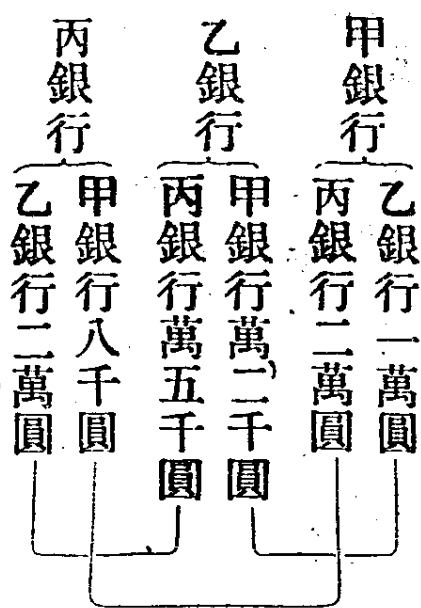 甲銀行
乙銀行一萬圓
丙銀行二萬圓
乙銀行
甲銀行萬二千圓
丙銀行萬五千圓
丙銀行
甲銀行八千圓
乙銀行二萬圓